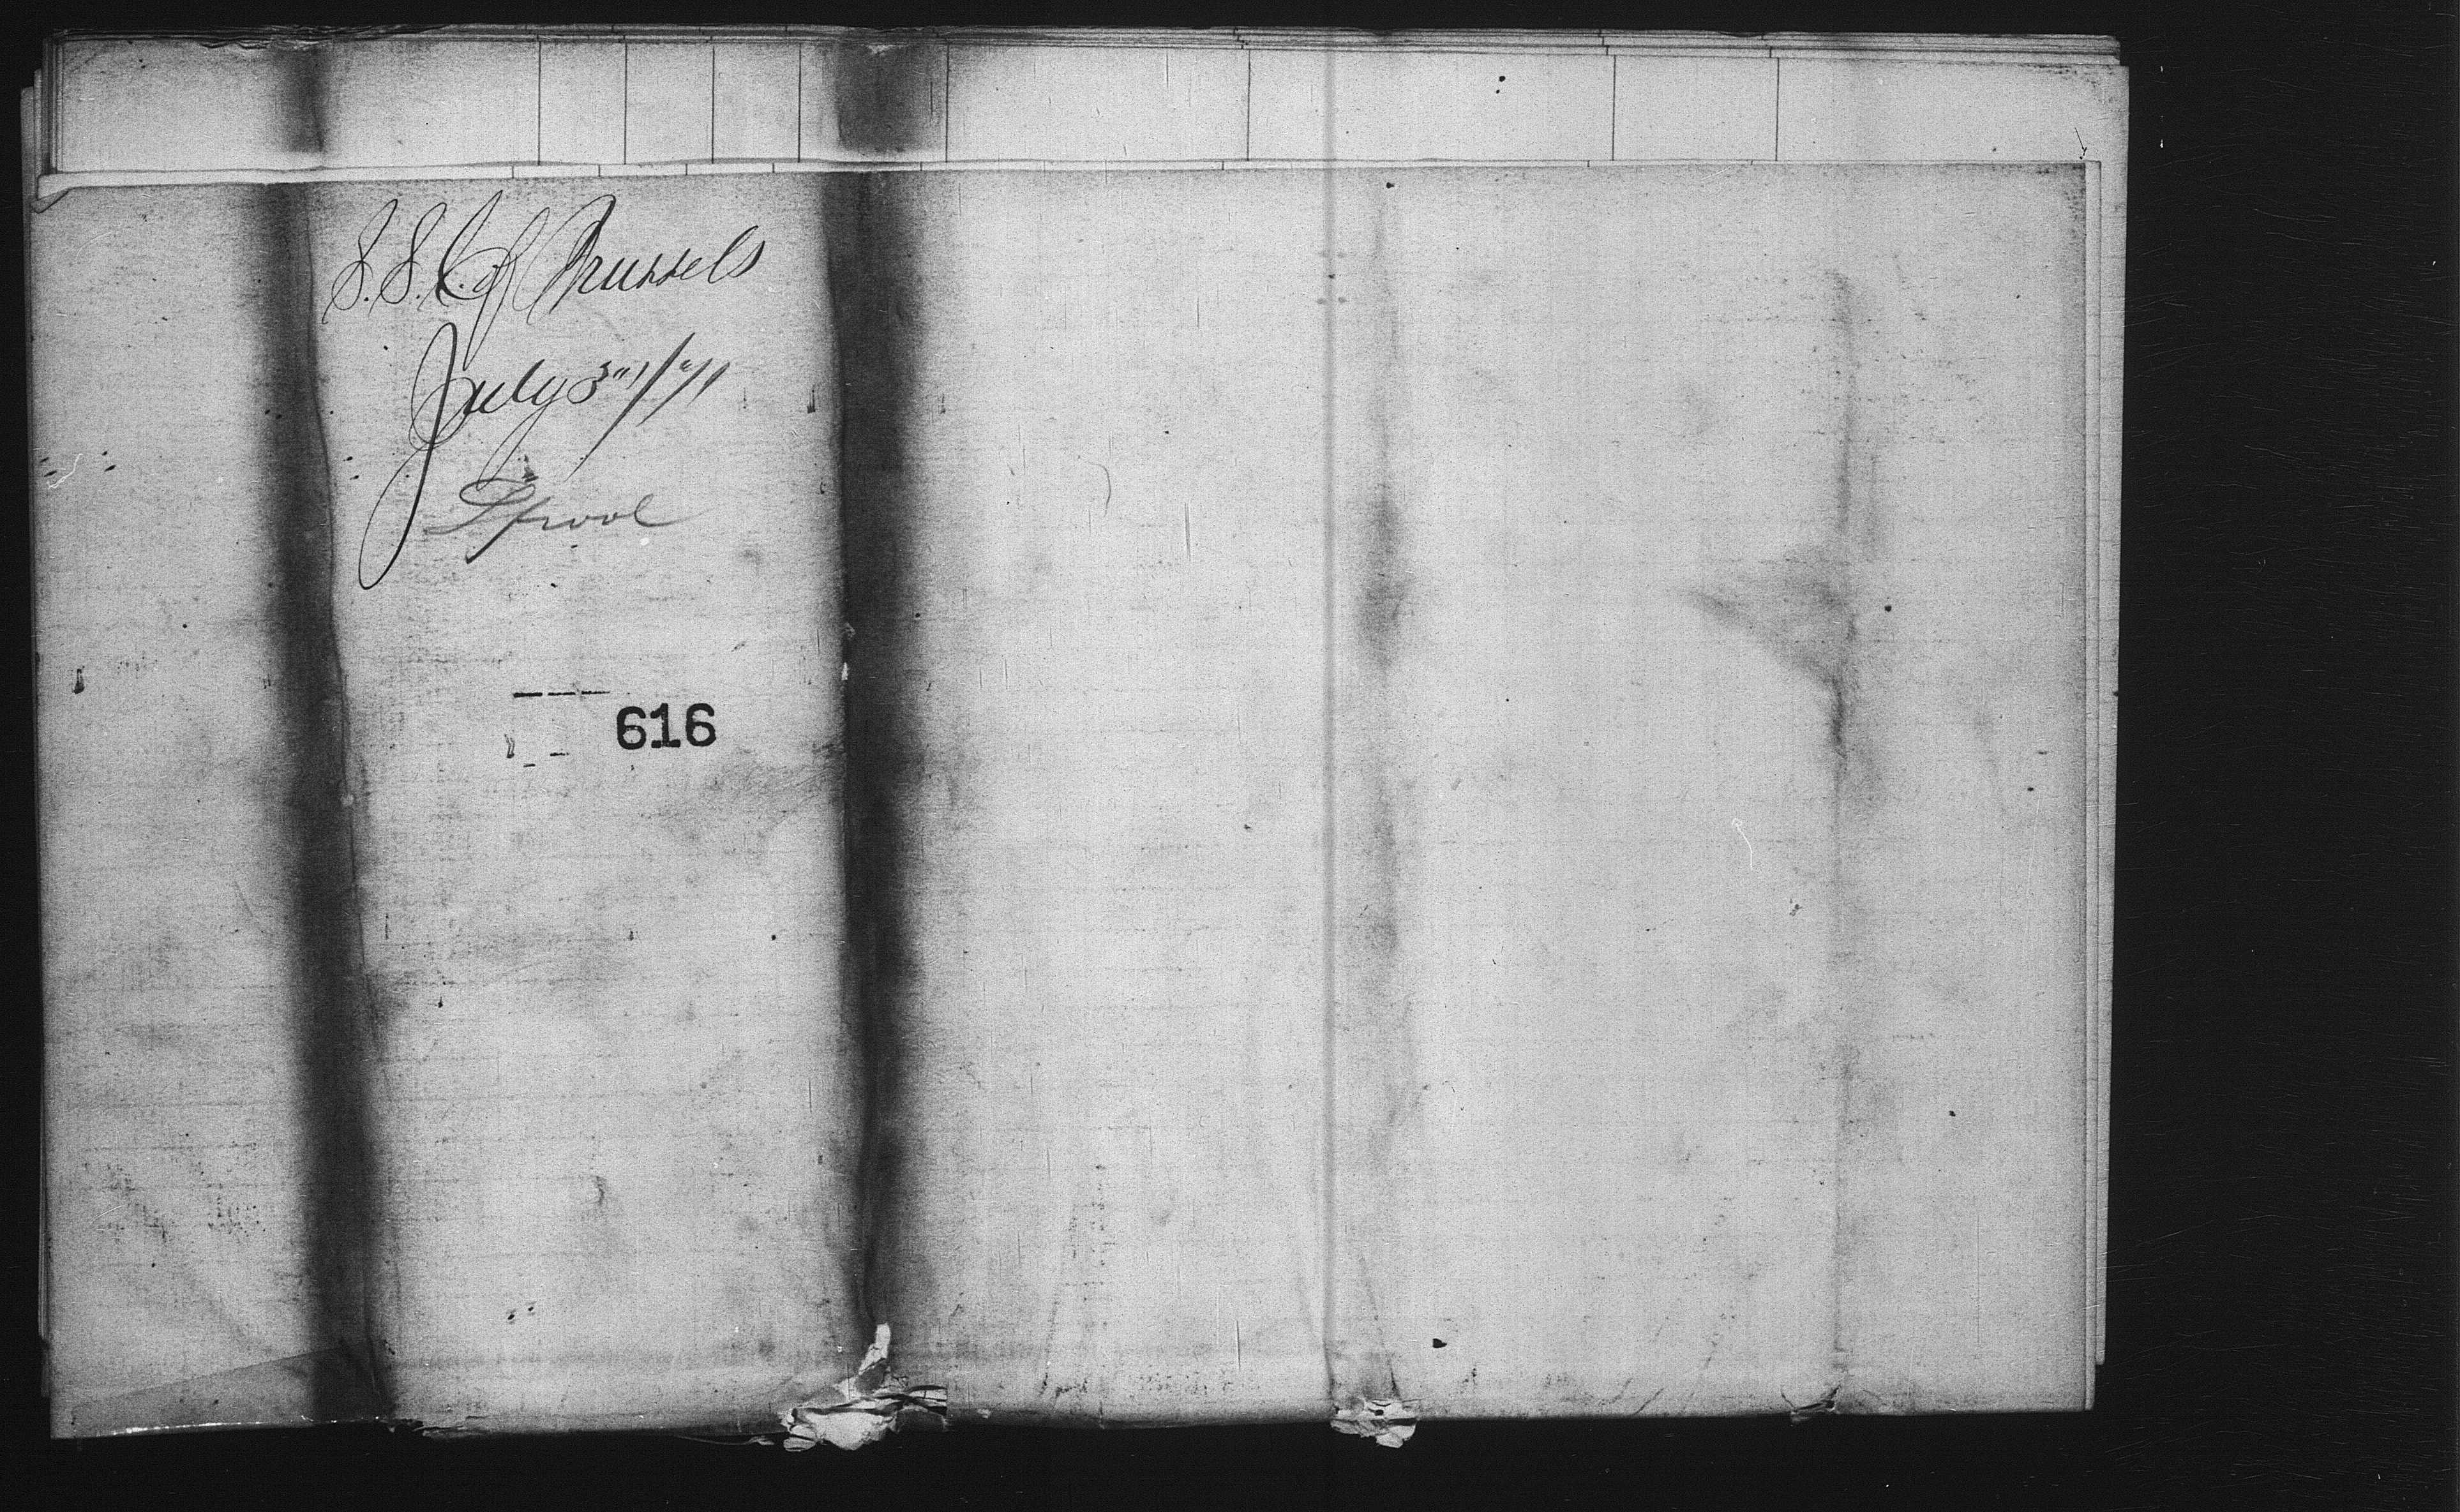 S.S. C. of Brussels
July 3"/71
L'pool
616